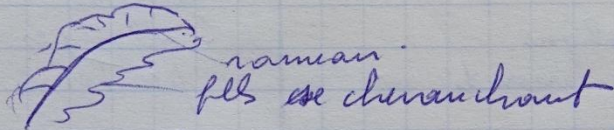 rameau.
flls se chevauchant